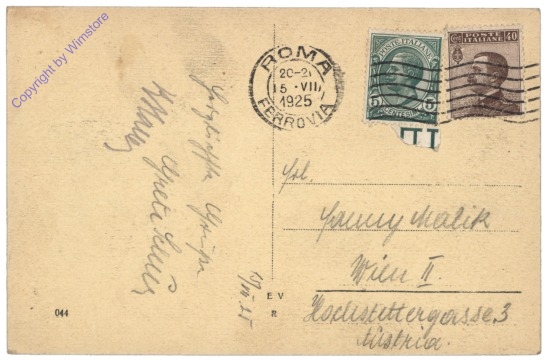 Copyright by Wimstore
ROMA
20-2
15 · VII
1925
FERROVIA
POSTE ITALIANE
5
5
CENTESIMI
POSTE
ITALIANE
40
Herzlichste Grüße
15/VII 25
Frl.
Fanny Malik
Wien II.
Hochstettergasse 3
Austria.
044
E V
R